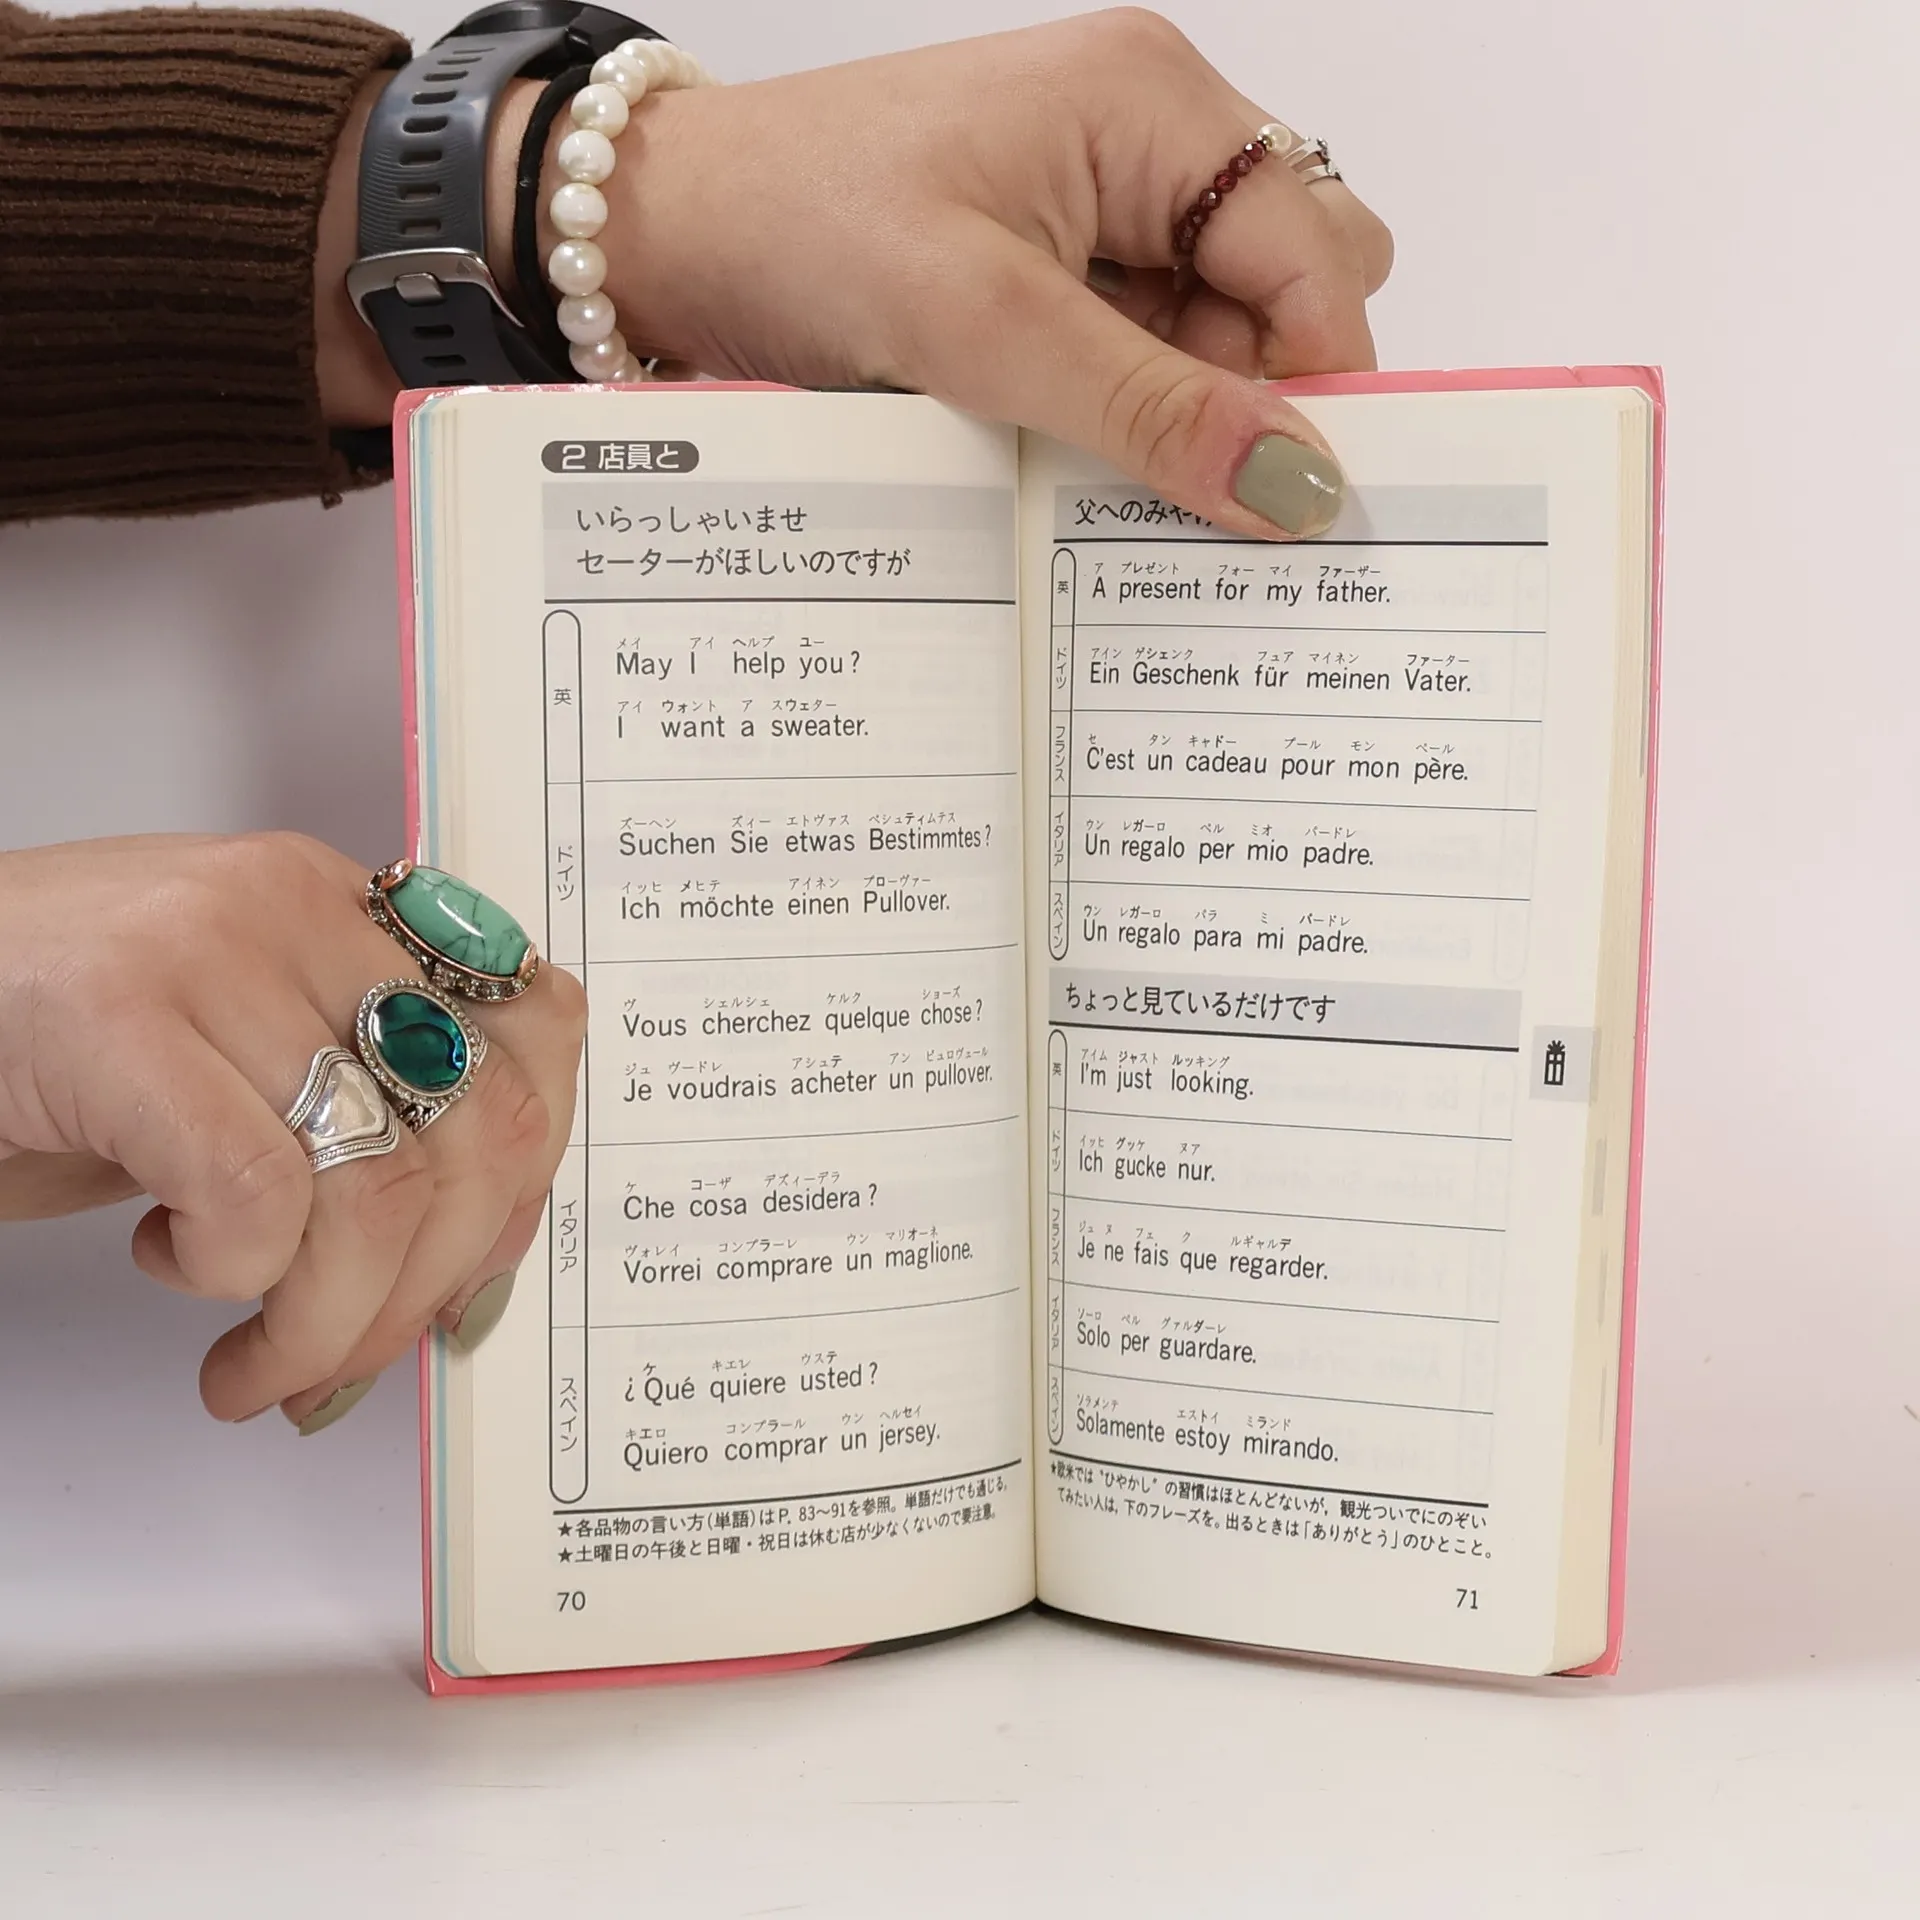 2 店員と
いらっしゃいませ
セーターがほしいのですが
英
メイ アイ ヘルプ ユー
May I help you?
アイ ウォント ア スウェター
I want a sweater.
ドイツ
ズーヘン ズィー エトヴァス ベシュティムテス
Suchen Sie etwas Bestimmtes?
イッヒ メヒテ アイネン プローヴァー
Ich möchte einen Pullover.
ヴ シェルシェ ケルク ショーズ
Vous cherchez quelque chose?
ジュ ヴードレ アシュテ アン ピュロヴェール
Je voudrais acheter un pullover.
イタリア
ケ コーザ デズィーデラ
Che cosa desidera?
ヴォレイ コンプラーレ ウン マリオーネ
Vorrei comprare un maglione.
スペイン
ケ キエレ ウステ
¿Qué quiere usted?
キエロ コンプラール ウン ヘルセイ
Quiero comprar un jersey.
★各品物の言い方(単語)はP. 83〜91を参照。単語だけでも通じる。
★土曜日の午後と日曜・祝日は休む店が少なくないので要注意。
70
父へのみや
英
ア プレゼント フォー マイ ファーザー
A present for my father.
ドイツ
アイン ゲシェンク フュア マイネン ファーター
Ein Geschenk für meinen Vater.
フランス
セ タン キャドー プール モン ペール
C'est un cadeau pour mon père.
イタリア
ウン レガーロ ペル ミオ パードレ
Un regalo per mio padre.
スペイン
ウン レガーロ パラ ミ パードレ
Un regalo para mi padre.
ちょっと見ているだけです
英
アイム ジャスト ルッキング
I'm just looking.
ドイツ
イッヒ グッケ ヌア
Ich gucke nur.
フランス
ジュ ヌ フェ ク ルギャルデ
Je ne fais que regarder.
イタリア
ソーロ ペル グァルダーレ
Solo per guardare.
スペイン
ソラメンテ エストイ ミランド
Solamente estoy mirando.
★欧米では“ひやかし”の習慣はほとんどないが，観光ついでにのぞい
てみたい人は，下のフレーズを。出るときは「ありがとう」のひとこと。
71